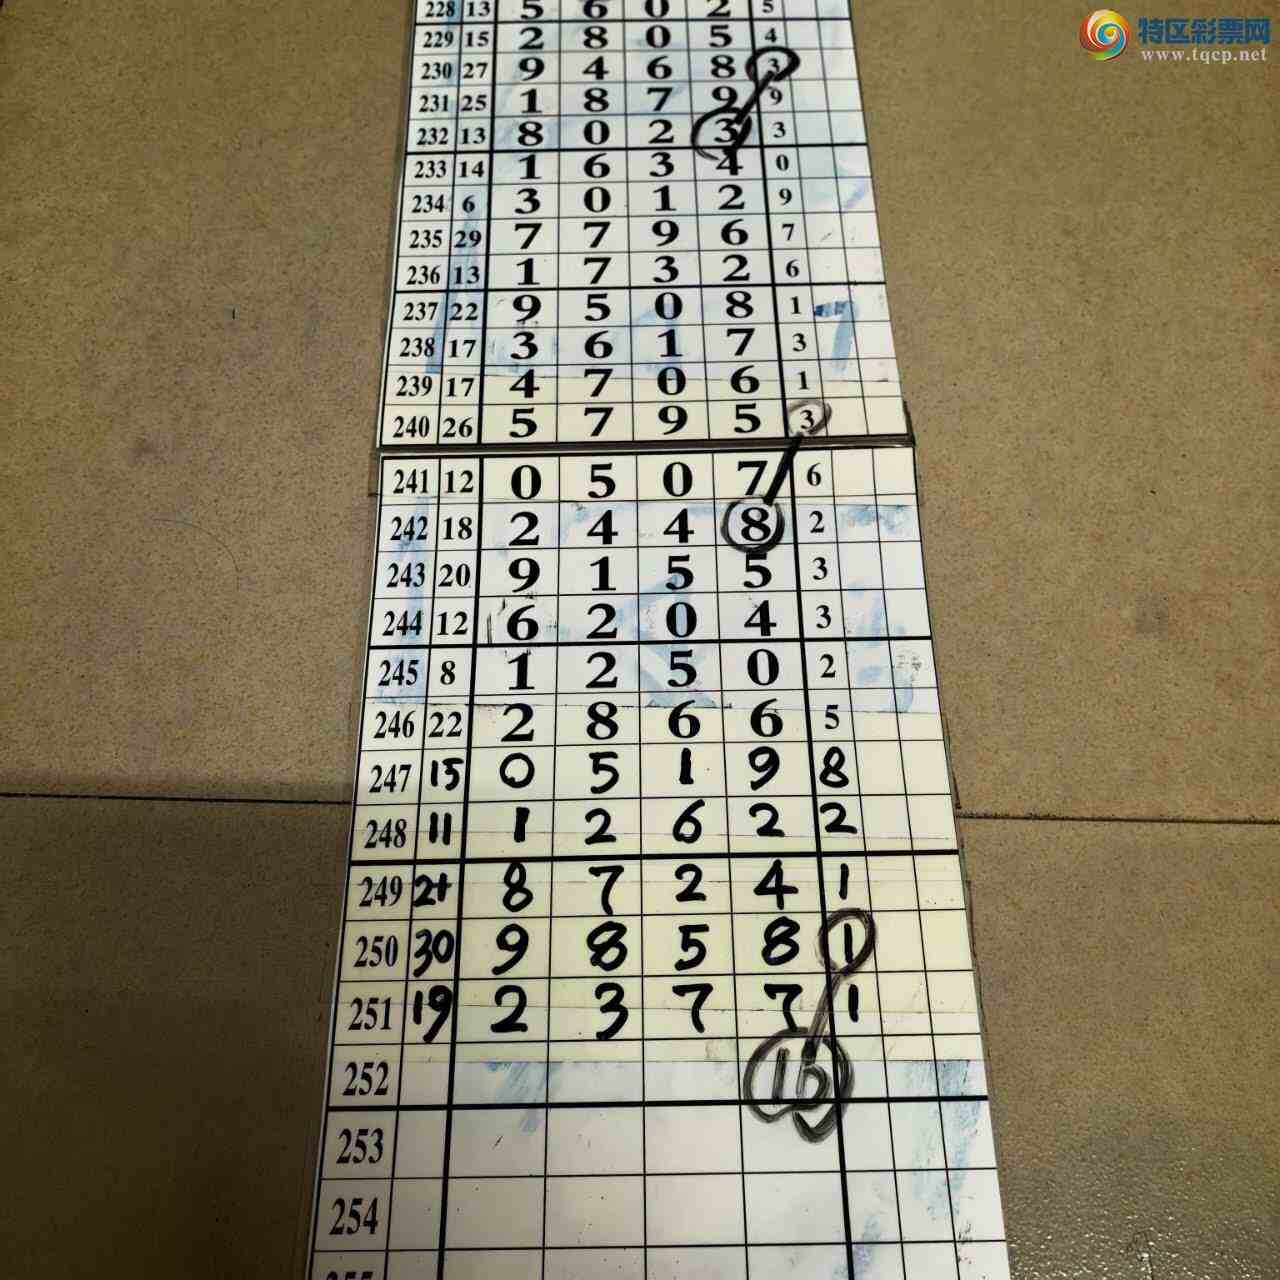 特区彩票网
www.tqcp.net
228 13 5 6 0 2 5
229 15 2 8 0 5 4
230 27 9 4 6 8 3
231 25 1 8 7 9 9
232 13 8 0 2 3 3
233 14 1 6 3 4 0
234 6 3 0 1 2 9
235 29 7 7 9 6 7
236 13 1 7 3 2 6
237 22 9 5 0 8 1 7
238 17 3 6 1 7 3
239 17 4 7 0 6 1
240 26 5 7 9 5 3
241 12 0 5 0 7 6
242 18 2 4 4 8 2
243 20 9 1 5 5 3
244 12 6 2 0 4 3
245 8 1 2 5 0 2
246 22 2 8 6 6 5
247 15 0 5 1 9 8
248 11 1 2 6 2 2
249 21 8 7 2 4 1
250 30 9 8 5 8 1
251 19 2 3 7 7 1
252 16
253
254